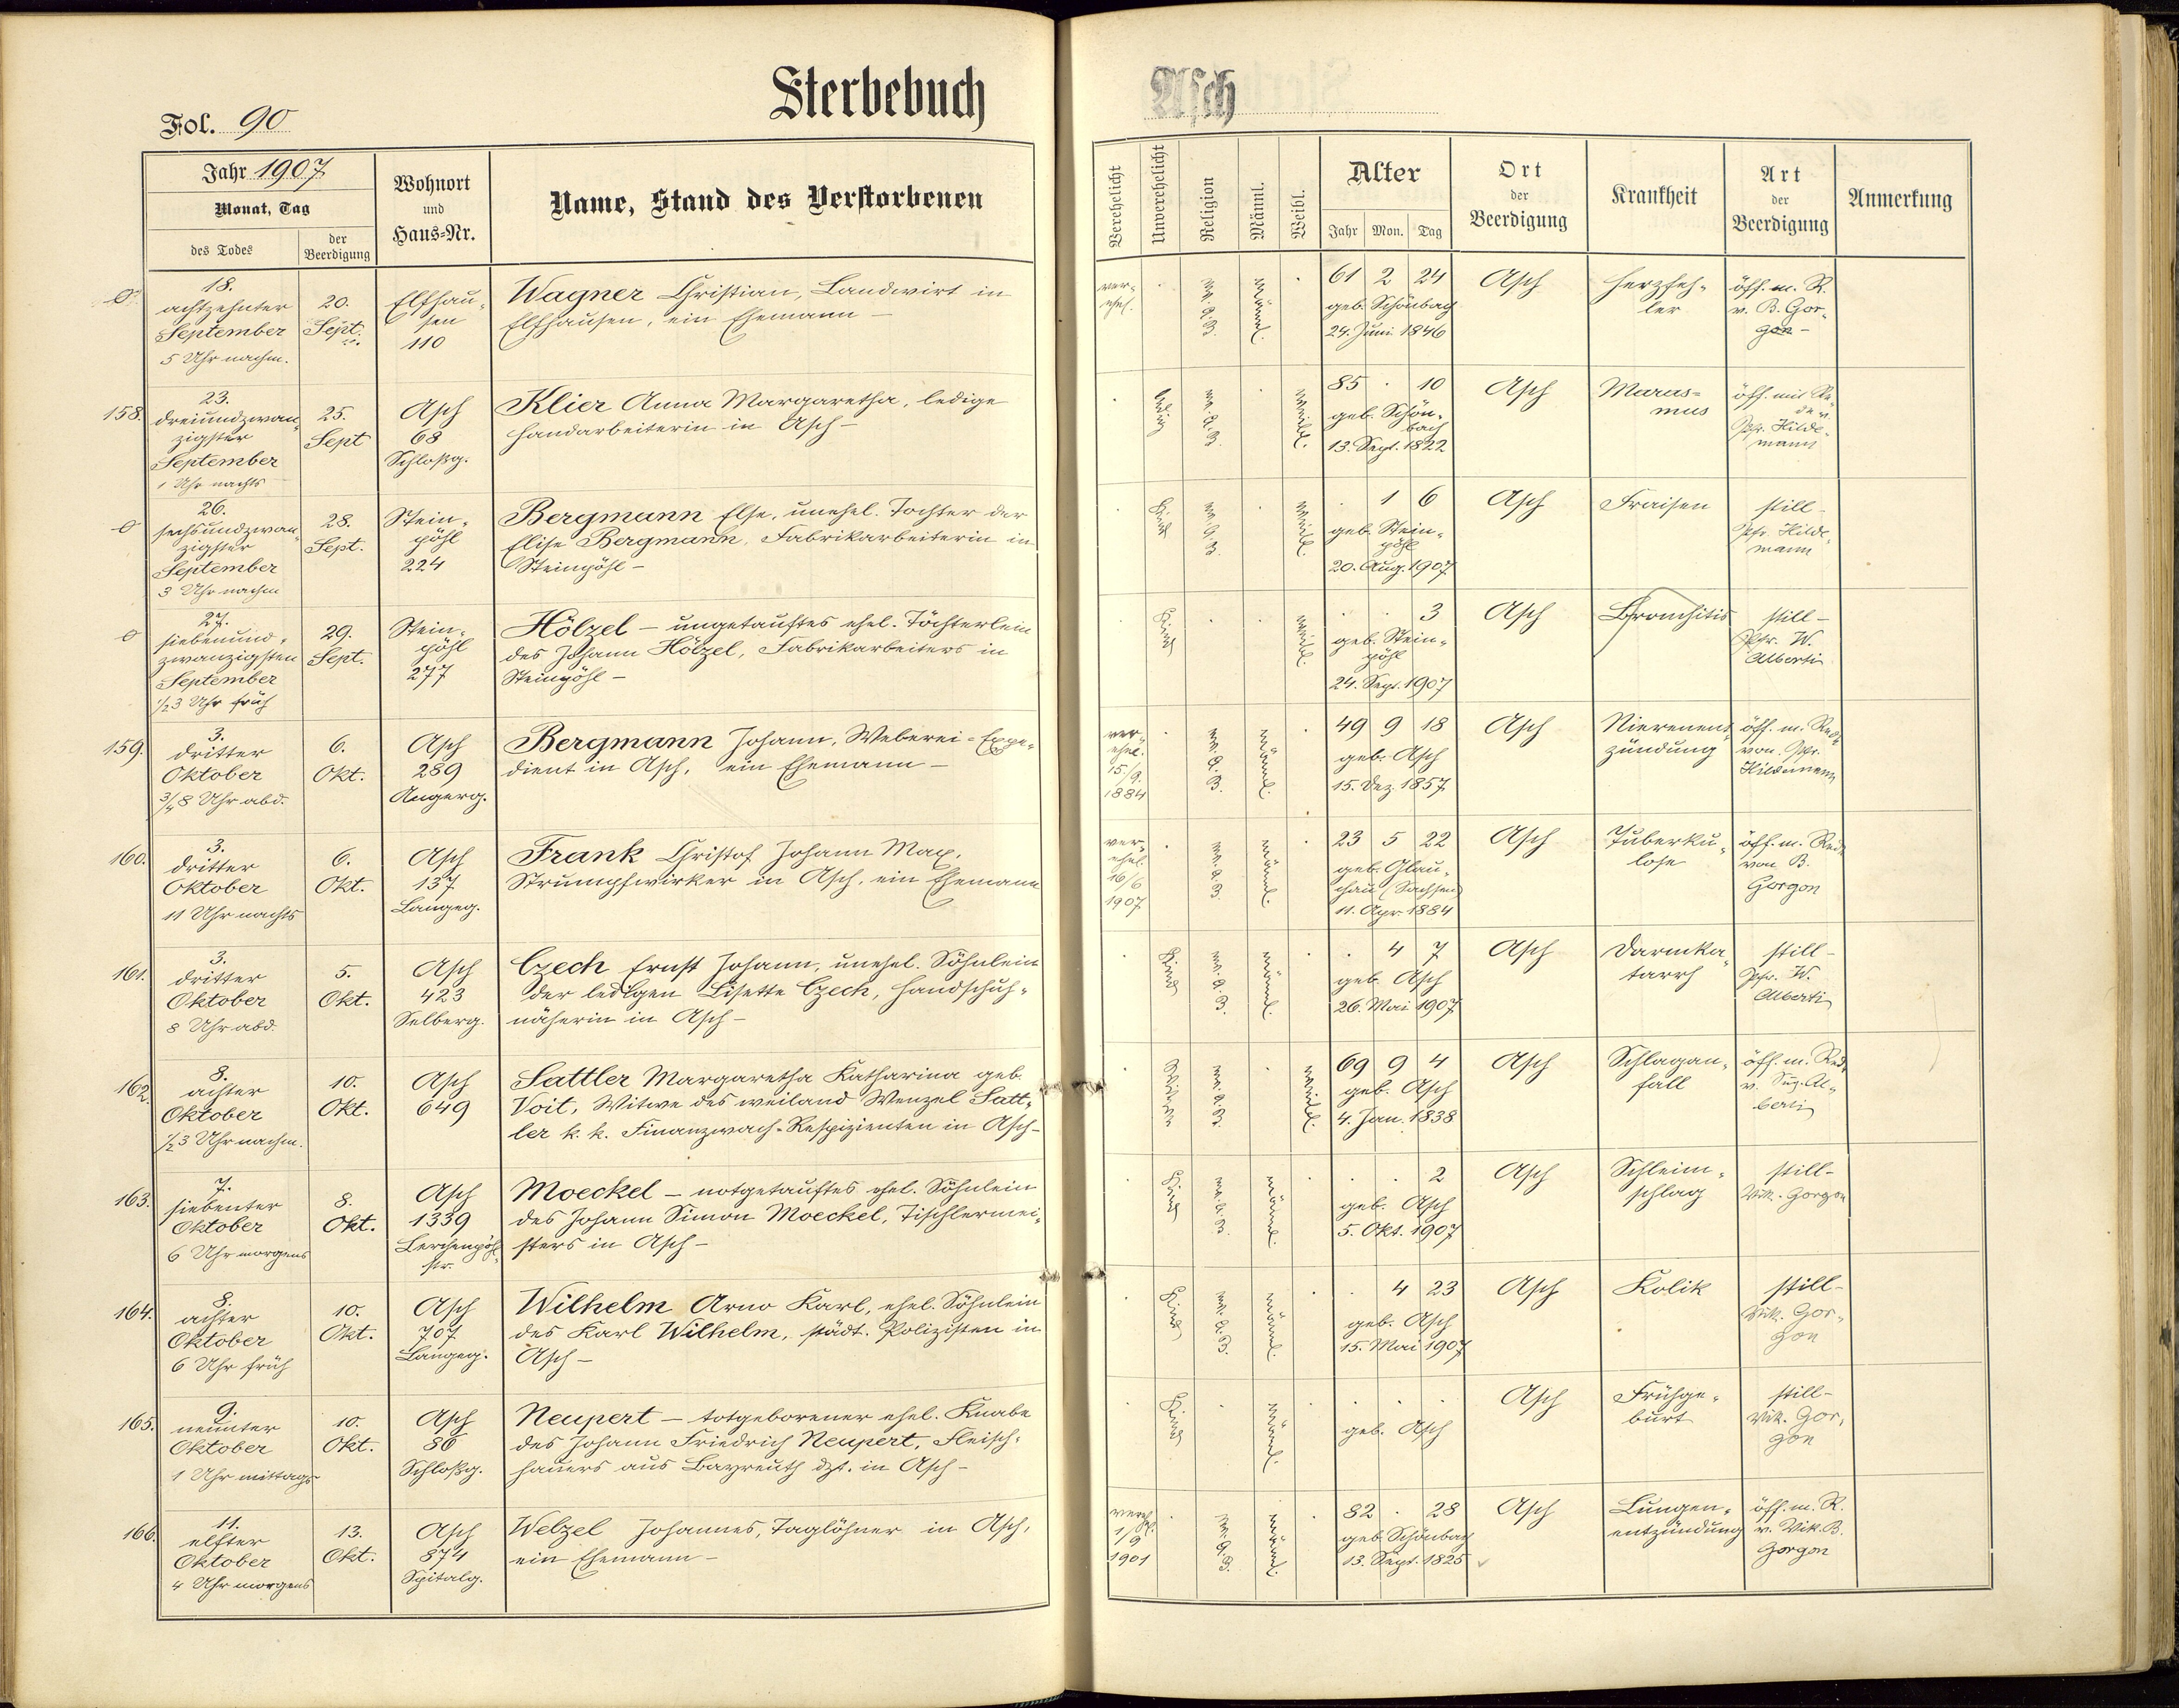 Sterbebuch
Asch
Fol. 90
Jahr 1907
Monat, Tag
des Todes
der Beerdigung
Wohnort und Haus-Nr.
Name, Stand des Verstorbenen
Verehelicht
Unverehelicht
Religion
Männl.
Weibl.
Alter
Jahr Mon. Tag
Ort der Beerdigung
Krankheit
Art der Beerdigung
Anmerkung
18.
achtzehnter
September
5 Uhr nachm.
20.
Sept.
Elfhau-
sen
110
Wagner Christian, Landwirt in
Elfhausen, ein Ehemann –
ver-
ehel.
ev. A. B.
männl.
61 2 24
geb. Schönbach
24. Juni 1846
Asch
Herzfeh-
ler
öff. m. R.
v. B. Gor-
gon –
158.
23.
dreiundzwan-
zigster
September
1 Uhr nachts
25.
Sept
Asch
68
Schloßg.
Klier Anna Margaretha, ledige
Handarbeiterin in Asch –
ledig
ev. A. B.
weibl.
85 · 10
geb. Schön-
bach
13. Sept. 1822
Asch
Maras-
mus
öff. mit Re-
de v.
Pfr. Hilde-
mann
26.
sechsundzwan-
zigster
September
3 Uhr nachm
28.
Sept.
Stein-
pöhl
224
Bergmann Else, unehel. Tochter der
Elise Bergmann, Fabrikarbeiterin in
Steinpöhl –
Kind
ev. A. B.
weibl.
· 1 6
geb. Stein-
pöhl
20. Aug. 1907
Asch
Fraisen
still –
Pfr. Hilde-
mann
27.
siebenund-
zwanzigsten
September
1/2 3 Uhr früh
29.
Sept.
Stein-
pöhl
277
Hölzel – ungetauftes ehel. Töchterlein
des Johann Hölzel, Fabrikarbeiters in
Steinpöhl –
Kind
weibl.
· · 3
geb. Stein-
pöhl
24. Sept. 1907
Asch
Bronchitis
still –
Pfr. W.
Alberti
159.
3.
dritter
Oktober
3/4 8 Uhr abd.
6.
Okt.
Asch
289
Angerg.
Bergmann Johann, Weberei-Expe-
dient in Asch, ein Ehemann –
ver-
ehel.
15/9.
1884
ev. A. B.
männl.
49 9 18
geb. Asch
15. Dez. 1857
Asch
Nierenent-
zündung
öff. m. Rede
von Pfr.
Hildemann
160.
3.
dritter
Oktober
11 Uhr nachts
6.
Okt.
Asch
137
Langeg.
Frank Christof Johann Max,
Strumpfwirker in Asch, ein Ehemann
ver-
ehel.
16/6
1907
ev. A. B.
männl.
23 5 22
geb. Glau-
chau (Sachsen)
11. Apr. 1884
Asch
Tuberku-
lose
öff. m. Rede
von B.
Gorgon
161.
3.
dritter
Oktober
8 Uhr abd.
5.
Okt.
Asch
423
Selberg.
Czech Ernst Johann, unehel. Söhnlein
der ledigen Lisette Czech, Handschuh-
näherin in Asch –
Kind
ev. A. B.
männl.
· 4 7
geb. Asch
26. Mai 1907
Asch
Darmka-
tarrh
still –
Pfr. W.
Alberti
162.
8.
achter
Oktober
1/2 3 Uhr nachm.
10.
Okt.
Asch
649
Sattler Margaretha Katharina geb.
Voit, Witwe des weiland Wenzel Satt-
ler k. k. Finanzwach-Respizienten in Asch –
Witwe
ev. A. B.
weibl.
69 9 4
geb. Asch
4. Jan. 1838
Asch
Schlagan-
fall
öff. m. Rede
v. Sup. Al-
berti
163.
7.
siebenter
Oktober
6 Uhr morgens
8.
Okt.
Asch
1339
Lerchenpöhl-
str.
Moeckel – notgetauftes ehel. Söhnlein
des Johann Simon Moeckel, Tischlermei-
sters in Asch –
Kind
ev. A. B.
männl.
· · 2
geb. Asch
5. Okt. 1907
Asch
Schleim-
schlag
still –
Vik. Gorgon
164.
8.
achter
Oktober
6 Uhr früh
10.
Okt.
Asch
707
Langeg.
Wilhelm Arno Karl, ehel. Söhnlein
des Karl Wilhelm, städt. Polizisten in
Asch –
Kind
ev. A. B.
männl.
· 4 23
geb. Asch
15. Mai 1907
Asch
Kolik
still –
Vik. Gor-
gon
165.
9.
neunter
Oktober
1 Uhr mittags
10.
Okt.
Asch
86
Schloßg.
Neupert – totgeborener ehel. Knabe
des Johann Friedrich Neupert, Fleisch-
hauers aus Bayreuth dzt. in Asch –
Kind
männl.
geb. Asch
Asch
Frühge-
burt
still –
Vik. Gor-
gon
166.
11.
elfter
Oktober
4 Uhr morgens
13.
Okt.
Asch
874
Spitalg.
Welzel Johannes, Taglöhner in Asch,
ein Ehemann –
vereh.
1/9
1901
ev. A. B.
männl.
82 · 28
geb. Schönbach
13. Sept. 1825
Asch
Lungen-
entzündung
öff. m. R.
v. Vik. B.
Gorgon